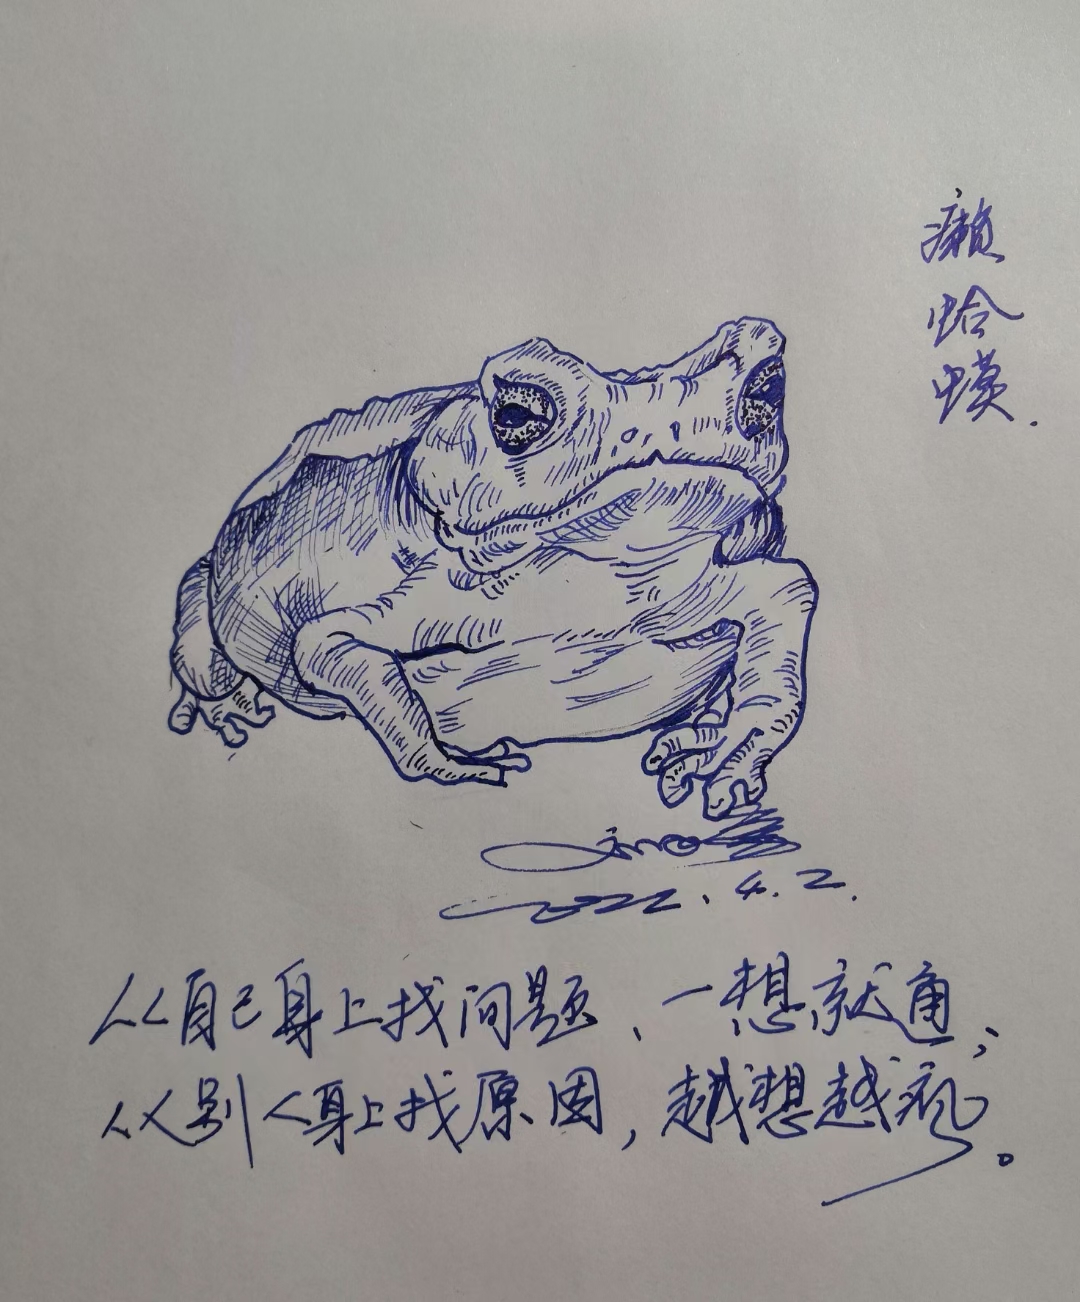 癞蛤蟆.
2022.4.2.
从自己身上找问题、一想就通；
从别人身上找原因，越想越疯。